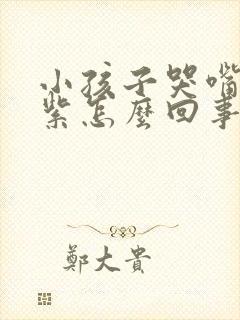 小孩子哭嘴
紫怎麼回事
鄭大貴